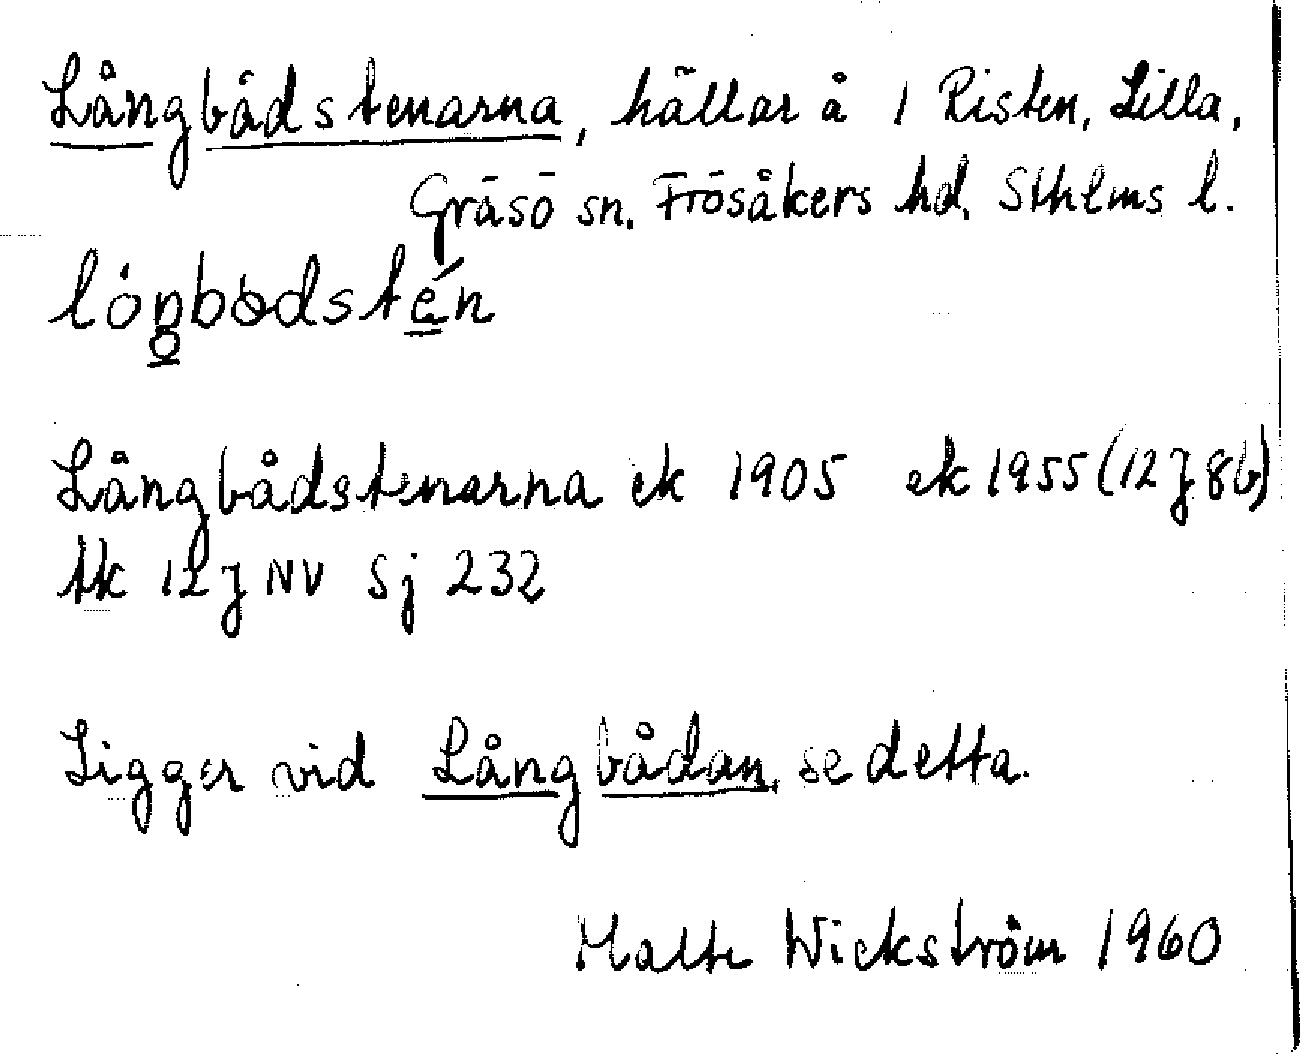 Långbådstenarna, hällar å 1 Risten, Lilla,
Gräsö sn. Frösåkers hd. Sthlms l.
Långbådstenarna ek 1905 ek 1955 (12J 8b)
tk 12J NV Sj 232
Ligger vid Långbådan, se detta.
Malte Wickström 1960